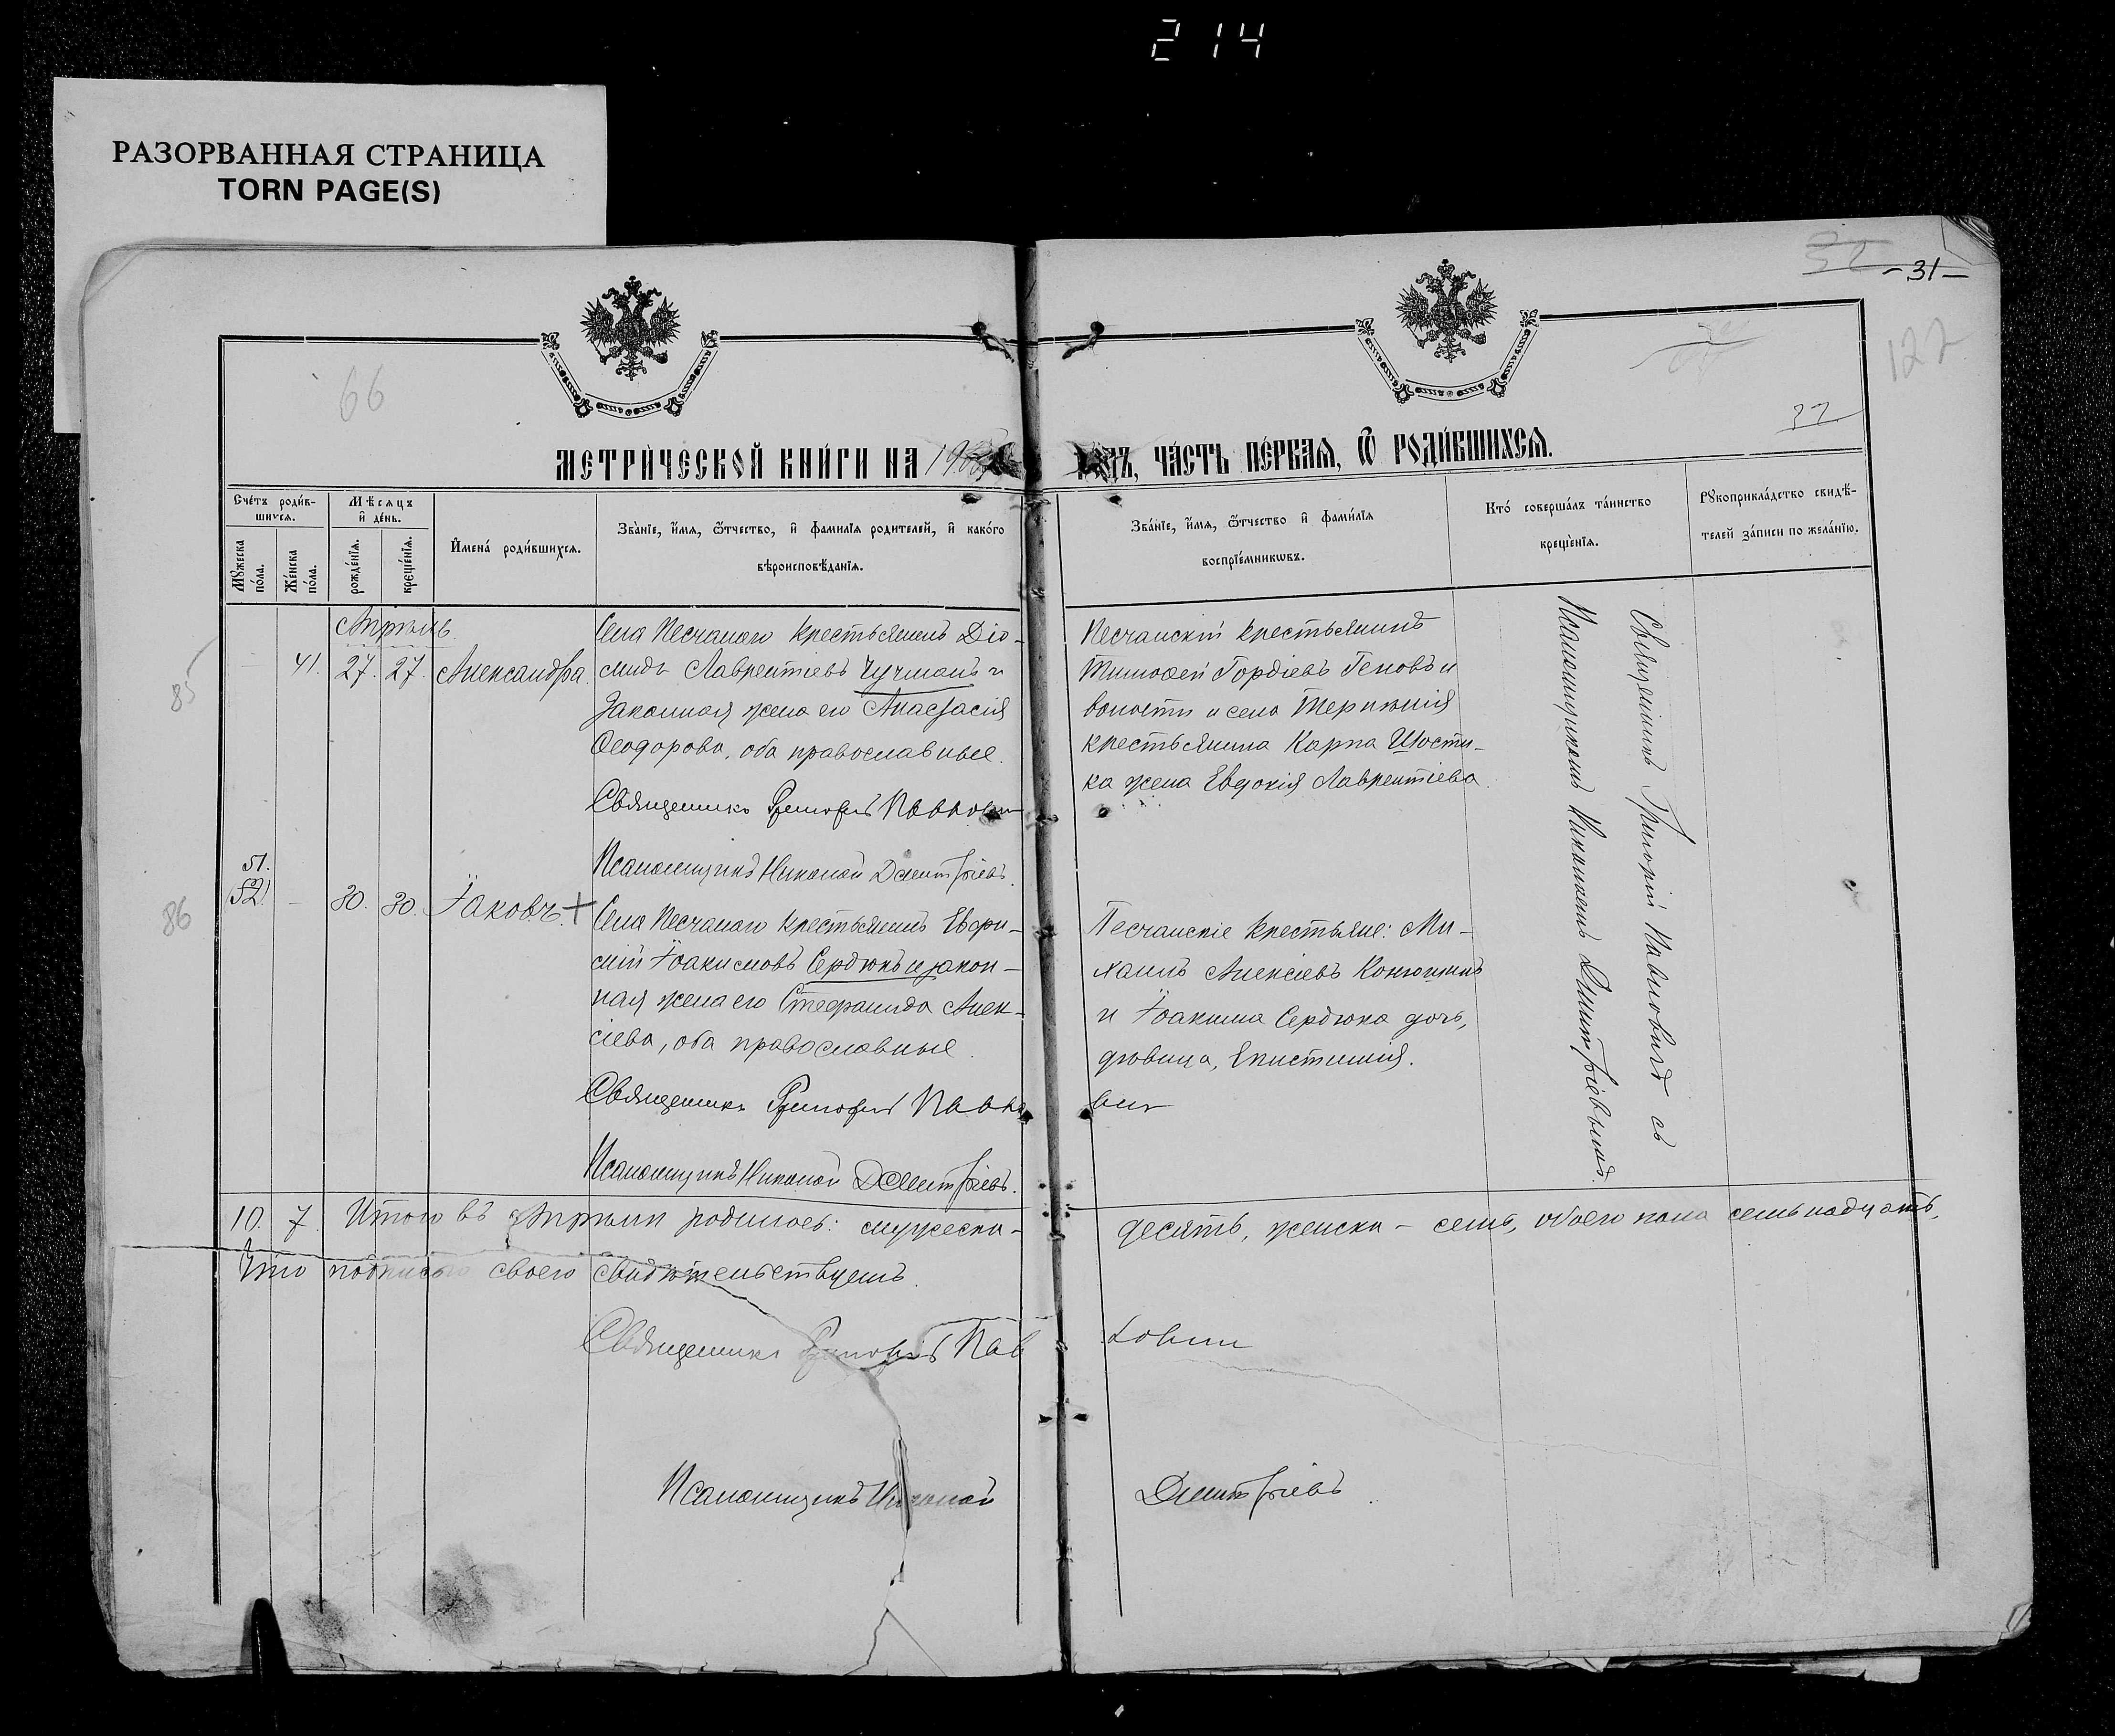 214
РАЗОРВАННАЯ СТРАНИЦА
TORN PAGE(S)
-31-
122
66
МЕТРИ́ЧЕСКОЙ КНИ́ГИ НА
ГОДЪ, ЧА́СТЬ ПЕ́РВАЯ, Ѿ РОДИ́ВШИХСЯ.
Сче́тъ роди́в-
шихся.
Мѣ́сяцъ
и҆ де́нь.
Мꙋ́жеска
по́ла.
Же́нска
по́ла.
рожде́нїя.
креще́нїя.
И҆мена́ роди́вшихся.
Зва́нїе, и҆́мя, ѻ҆́тчество, и҆ фами́лїя родителей, и҆ како́го
вѣроисповѣ́данїя.
Зва́нїе, и҆́мя, ѻ҆́тчество и҆ фами́лїя
воспрїе́мникѡвъ.
Кто́ соверша́лъ та́инство
креще́нїя.
Рꙋкоприкла́дство свидѣ́-
телей за́писи по жела́нїю.
Апрѣль.
85
41. 27. 27. Александра.
Села Песчанаго крестьянинъ Діо-
мидъ Лаврентіевъ Чучманъ и
законная жена его Анастасія
Ѳеодорова, оба православные.
Священникъ Григорій Павлович
Псаломщикъ Николай Дмитріевъ.
Песчанскій крестьянинъ
Тимоѳей Гордіевъ Геновъ и
волости и села
крестьянина Карпа Шости-
ка жена Евдокія Лаврентіева.
Священникъ Григорій Павловичъ съ
Псаломщикомъ Николаемъ Дмитріевымъ.
86
51.
(52). - 30. 30. Іаковъ. +
Села Песчанаго крестьянинъ Евѳи-
мій Іоакимовъ Сердюкъ и закон-
ная жена его Стефанида Алек-
сіева, оба православные.
Священникъ Григорій Павло
вич
Псаломщикъ Николай Дмитріевъ.
Песчанскіе крестьяне: Ми-
хаилъ Алексіевъ Конюшинъ
и Іоакима Сердюка дочь,
дѣвица, Епистимія.
10. 7. Итого въ Апрѣлѣ родилось: мужеска - десять, женска - семь, обоего пола семьнадцать,
Что подписью своею свидѣтельствуемъ.
Священникъ Григорій Пав ловичъ
Псаломщикъ Николай Дмитріевъ.